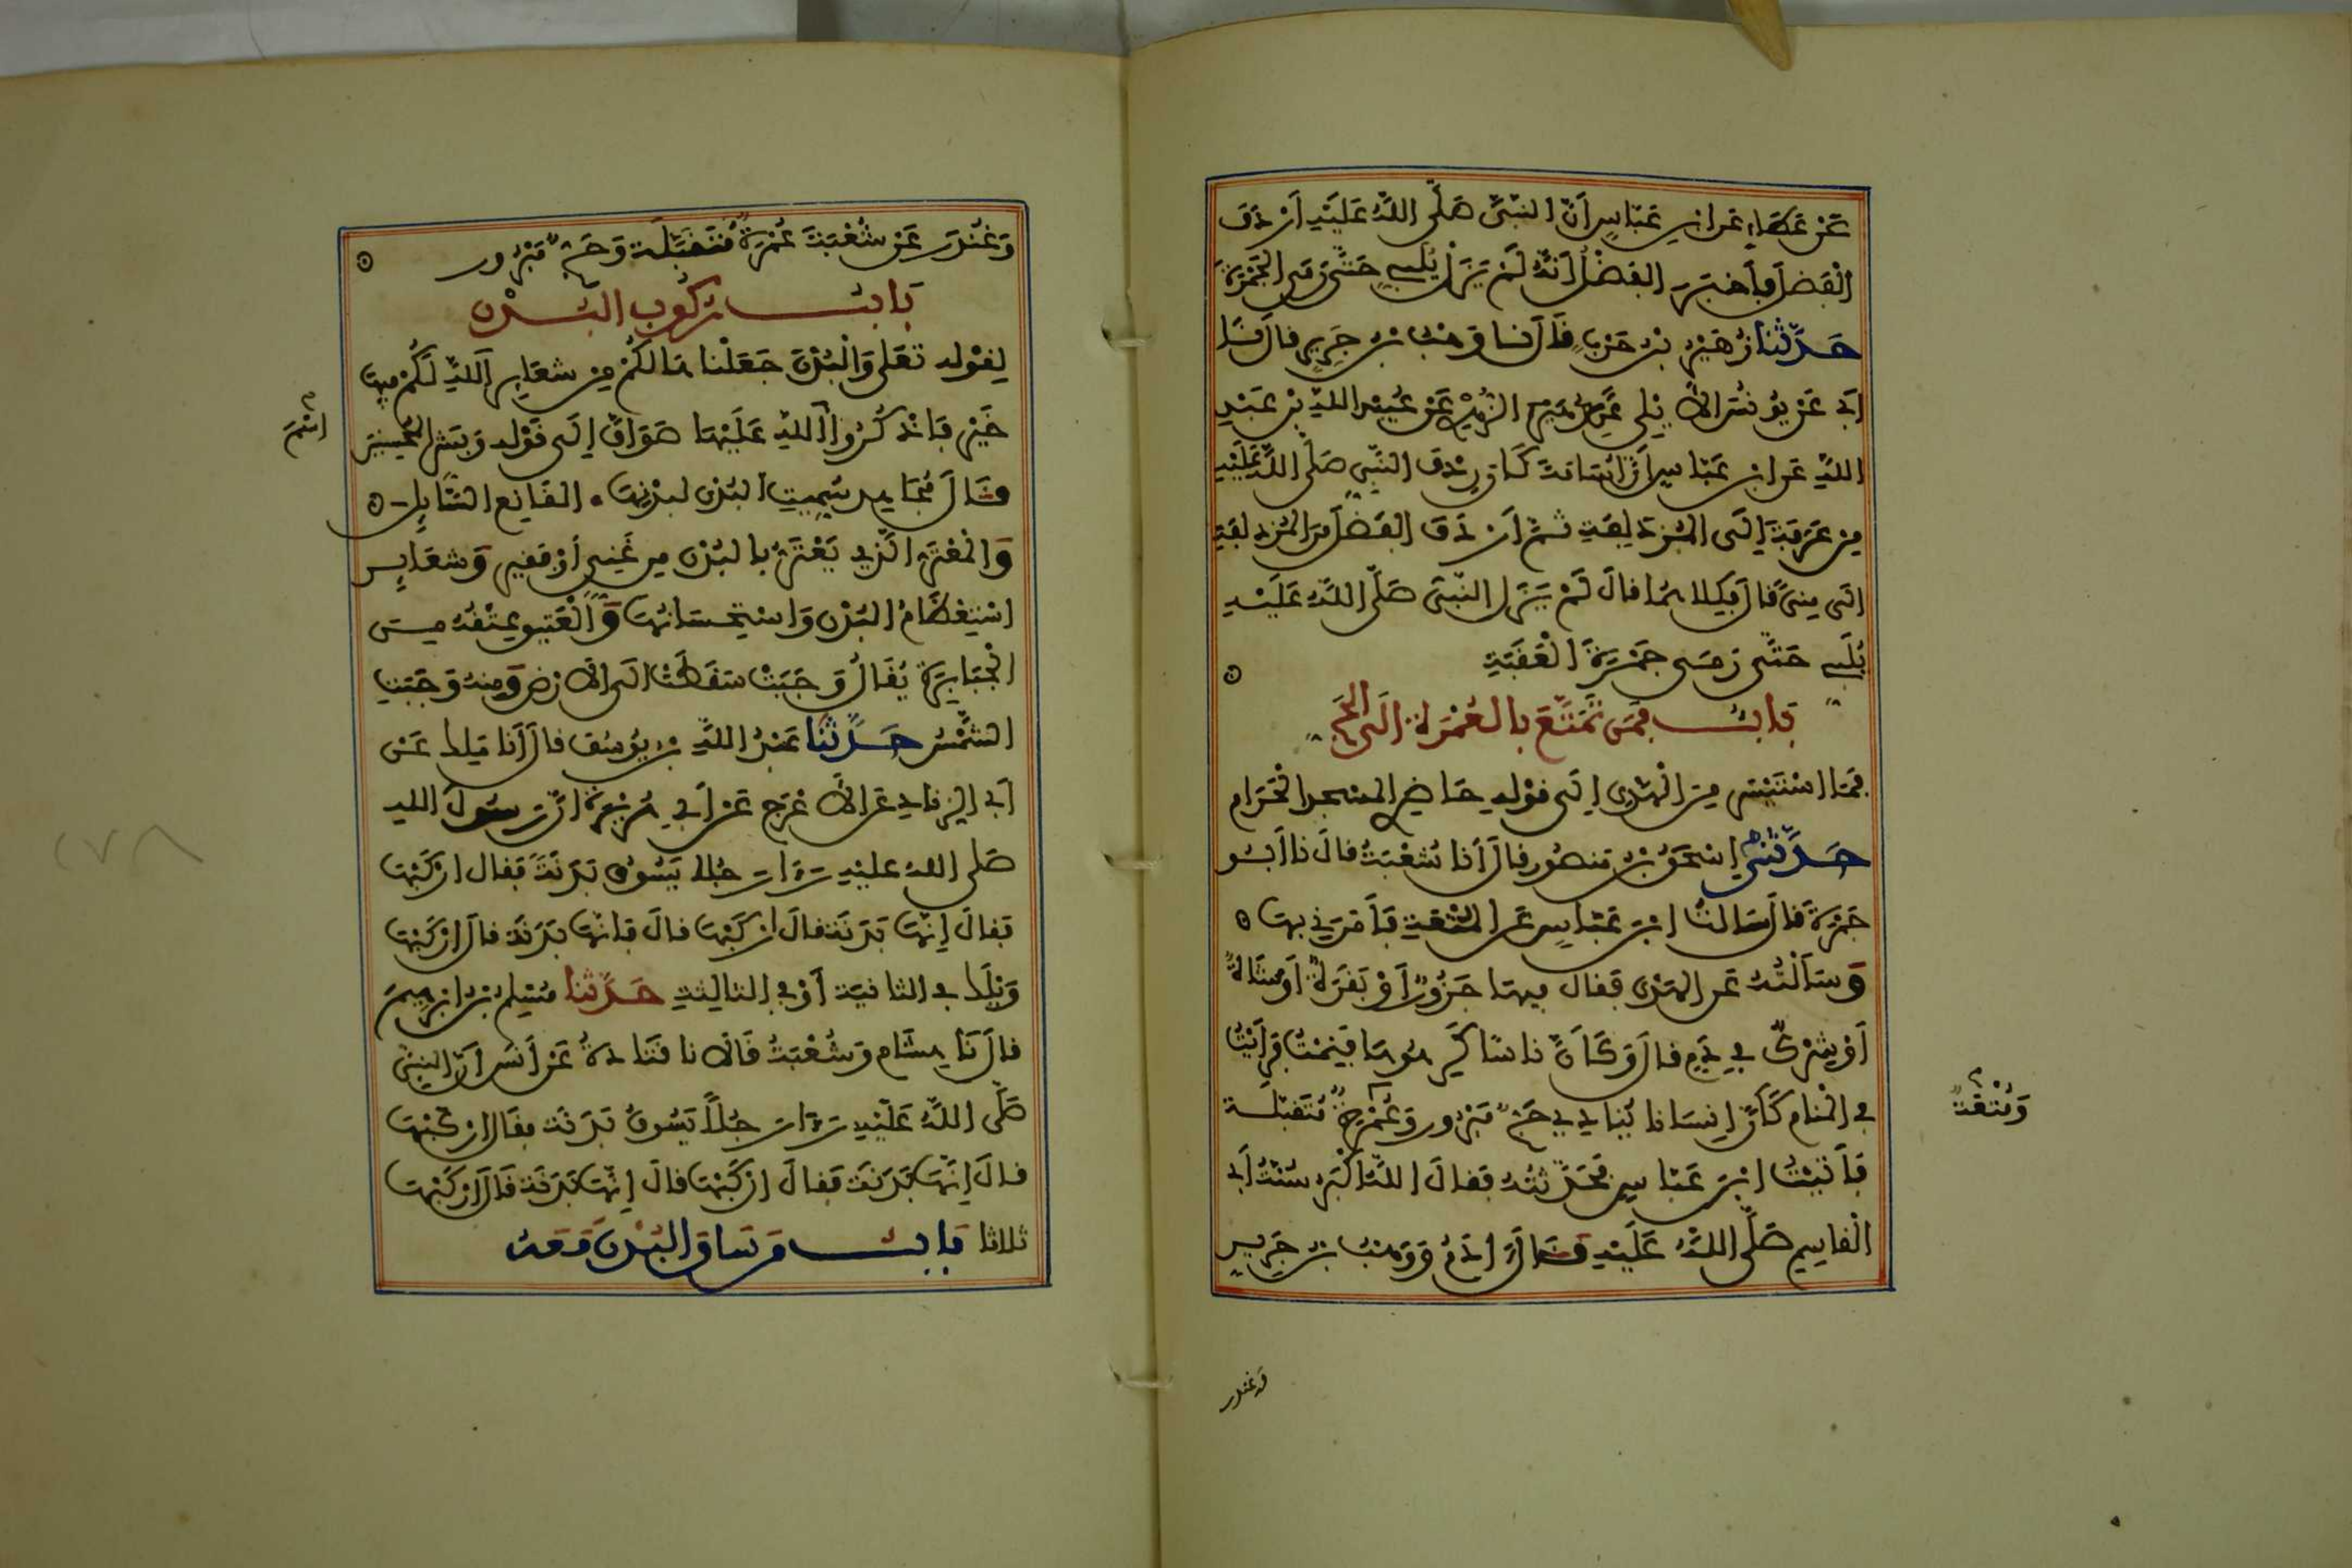 عَنْ عَطَاءٍ عَنِ ابْنِ عَبَّاسٍ أَنَّ النَّبِيَّ صَلَّى اللَّهُ عَلَيْهِ أَرْدَفَ
الْفَضْلَ فَأَخْبَرَ الْفَضْلُ أَنَّهُ لَمْ يَزَلْ يُلَبِّي حَتَّى رَمَى الْجَمْرَةَ
حَدَّثَنَا زُهَيْرُ بْنُ حَرْبٍ قَالَ نَا وَهْبُ بْنُ جَرِيرٍ قَالَ نَا
أَبِي عَنْ يُونُسَ الْأَيْلِي عَنِ الزُّهْرِيِّ عَنْ عُبَيْدِ اللَّهِ بْنِ عَبْدِ
اللَّهِ عَنِ ابْنِ عَبَّاسٍ أَنَّ أُسَامَةَ كَانَ رِدْفَ النَّبِيِّ صَلَّى اللَّهُ عَلَيْهِ
مِنْ عَرَفَةَ إِلَى الْمُزْدَلِفَةِ ثُمَّ أَرْدَفَ الْفَضْلَ مِنَ الْمُزْدَلِفَةِ
إِلَى مِنًى قَالَ فَكِلَاهُمَا قَالَ لَمْ يَزَلِ النَّبِيُّ صَلَّى اللَّهُ عَلَيْهِ
يُلَبِّي حَتَّى رَمَى جَمْرَةَ الْعَقَبَةِ
بَابٌ فَمَنْ تَمَتَّعَ بِالْعُمْرَةِ إِلَى الْحَجِّ
فَمَا اسْتَيْسَرَ مِنَ الْهَدْيِ إِلَى قَوْلِهِ حَاضِرِي الْمَسْجِدِ الْحَرَامِ
حَدَّثَنِي إِسْحَقُ بْنُ مَنْصُورٍ قَالَ أَنَا شُعْبَةُ قَالَ نَا أَبُو
جَمْرَةَ قَالَ سَأَلْتُ ابْنَ عَبَّاسٍ عَنِ الْمُتْعَةِ فَأَمَرَنِي بِهَا
وَسَأَلْتُهُ عَنِ الْهَدْيِ فَقَالَ فِيهَا جَزُورٌ أَوْ بَقَرَةٌ أَوْ شَاةٌ
أَوْ شِرْكٌ فِي دَمٍ قَالَ وَكَأَنَّ نَاسًا كَرِهُوهَا فَنِمْتُ فَرَأَيْتُ
فِي الْمَنَامِ كَأَنَّ إِنْسَانًا يُنَادِي حَجٌّ مَبْرُورٌ وَعُمْرَةٌ مُتَقَبَّلَةٌ
وَمُتْعَةٌ
فَأَتَيْتُ ابْنَ عَبَّاسٍ فَحَدَّثْتُهُ فَقَالَ اللَّهُ أَكْبَرُ سُنَّةُ أَبِي
الْقَاسِمِ صَلَّى اللَّهُ عَلَيْهِ وَقَالَ آدَمُ وَوَهْبُ بْنُ جَرِيرٍ
وغندر
وَغُنْدَرٌ عَنْ شُعْبَةَ عُمْرَةٌ مُتَقَبَّلَةٌ وَحَجٌّ مَبْرُورٌ
بَابُ رُكُوبِ الْبُدْنِ
لِقَوْلِهِ تَعَلَى وَالْبُدْنَ جَعَلْنَاهَا لَكُمْ مِنْ شَعَايِرِ اللَّهِ لَكُمْ فِيهَا
خَيْرٌ فَاذْكُرُوا اللَّهِ عَلَيْهَا صَوَافَّ إِلَى قَوْلِهِ وَبَشِّرِ الْمُحْسِنِينَ
اسْمَ
وَقَالَ مُجَاهِدٌ سُمِّيَتِ الْبُدْنَ لِبُدْنِهَا الْقَانِعُ السَّايِلُ
وَالْمُعْتَرُّ الَّذِي يَعْتَرُّ بِالْبُدْنِ مِنْ غَنِيٍّ أَوْ فَقِيرٍ وَشَعَايِرُ
اسْتِعْظَامُ الْبُدْنِ وَاسْتِحْسَانُهَا وَالْعَتِيقُ عِتْقُهُ مِنَ
الْجَبَابِرَةِ يُقَالُ وَجَبَتْ سَقَطَتْ إِلَى الْأَرْضِ وَمِنْهُ وَجَبَتِ
الشَّمْسُ حَدَّثَنَا عَبْدُ اللَّهِ بْنُ يُوسُفَ قَالَ أَنَا مَلِكٌ عَنْ
أَبِي الزِّنَادِ عَنِ الْأَعْرَجِ عَنْ أَبِي هُرَيْرَةَ أَنَّ رَسُولَ اللهِ
صَلَى اللهُ عَلَيْهِ رَأَى رَجُلًا يَسُوقُ بَدَنَةً فَقَالَ ارْكَبْهَا
فَقَالَ إِنَّهَا بَدَنَةٌ فَقَالَ ارْكَبْهَا قَالَ فَإِنَّهَا بَدَنَةٌ قَالَ ارْكَبْهَا
وَيْلَكَ فِي الثَّانِيَةِ أَوْ فِي الثَّالِثَةِ حَدَّثَنَا مُسْلِمُ بْنُ إِبْرَهِيمَ
قَالَ نَا هِشَامٌ وَشُعْبَةُ قَالَا نَا قَتَادَةُ عَنْ أَنَسٍ أَنَّ النَّبِيَّ
صَلَّى اللَّهُ عَلَيْهِ رَأَى رَجُلًا يَسُوقُ بَدَنَةً فَقَالَ ارْكَبْهَا
قَالَ إِنَّهَا بَدَنَةٌ فَقَالَ ارْكَبْهَا قَالَ إِنَّهَا بَدَنَةٌ قَالَ ارْكَبْهَا
ثَلَاثًا بَابُ مَنْ سَاقَ الْبُدْنَ مَعَهُ
٢٧٨